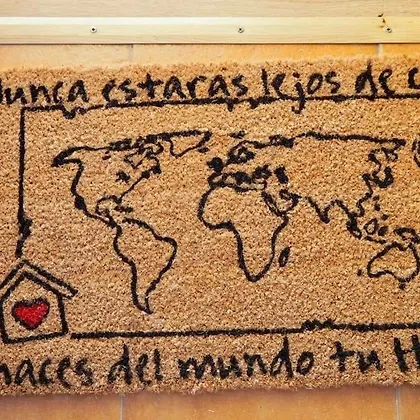 Nunca estaras lejos de
haces del mundo tu